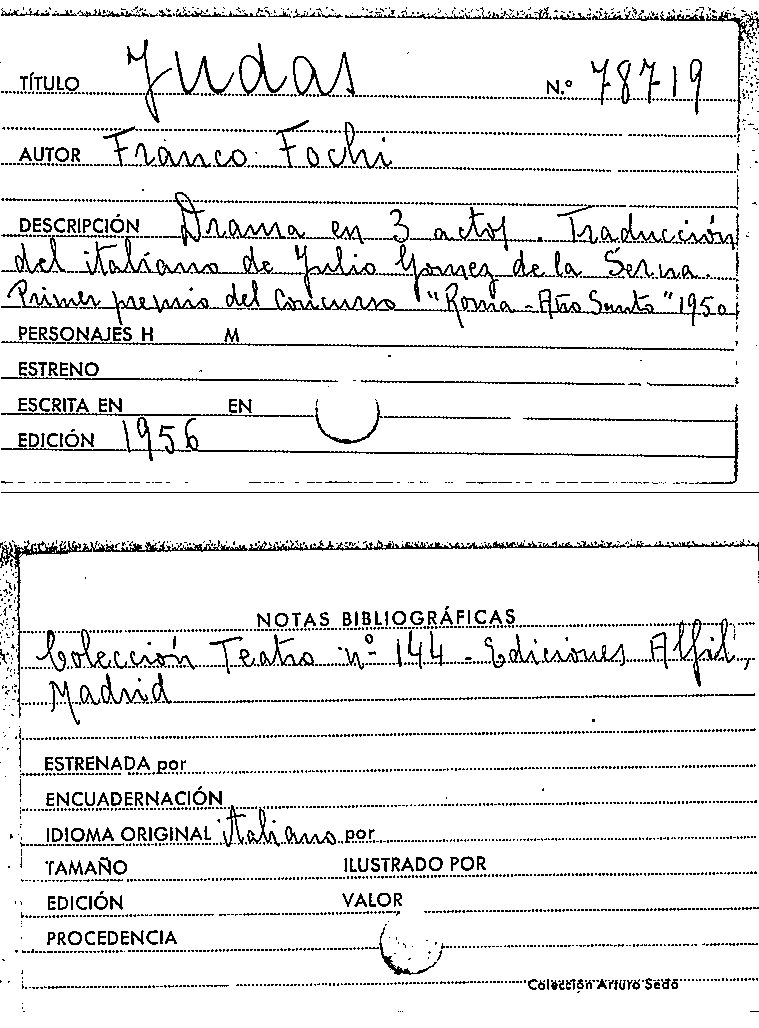 TÍTULO Judas N.º 78719
AUTOR Franco Fochi
DESCRIPCIÓN Drama en 3 actos. Traducción
del italiano de Julio Gomez de la Serna.
Primer premio del Concurso "Roma-Año Santo" 1950
PERSONAJES H M
ESTRENO
ESCRITA EN EN
EDICIÓN 1956
NOTAS BIBLIOGRÁFICAS
Colección Teatro nº 144 - Ediciones Alfil,
Madrid
ESTRENADA por
ENCUADERNACIÓN
IDIOMA ORIGINAL italiano por
TAMAÑO ILUSTRADO POR
EDICIÓN VALOR
PROCEDENCIA
Colección Arturo Sedó